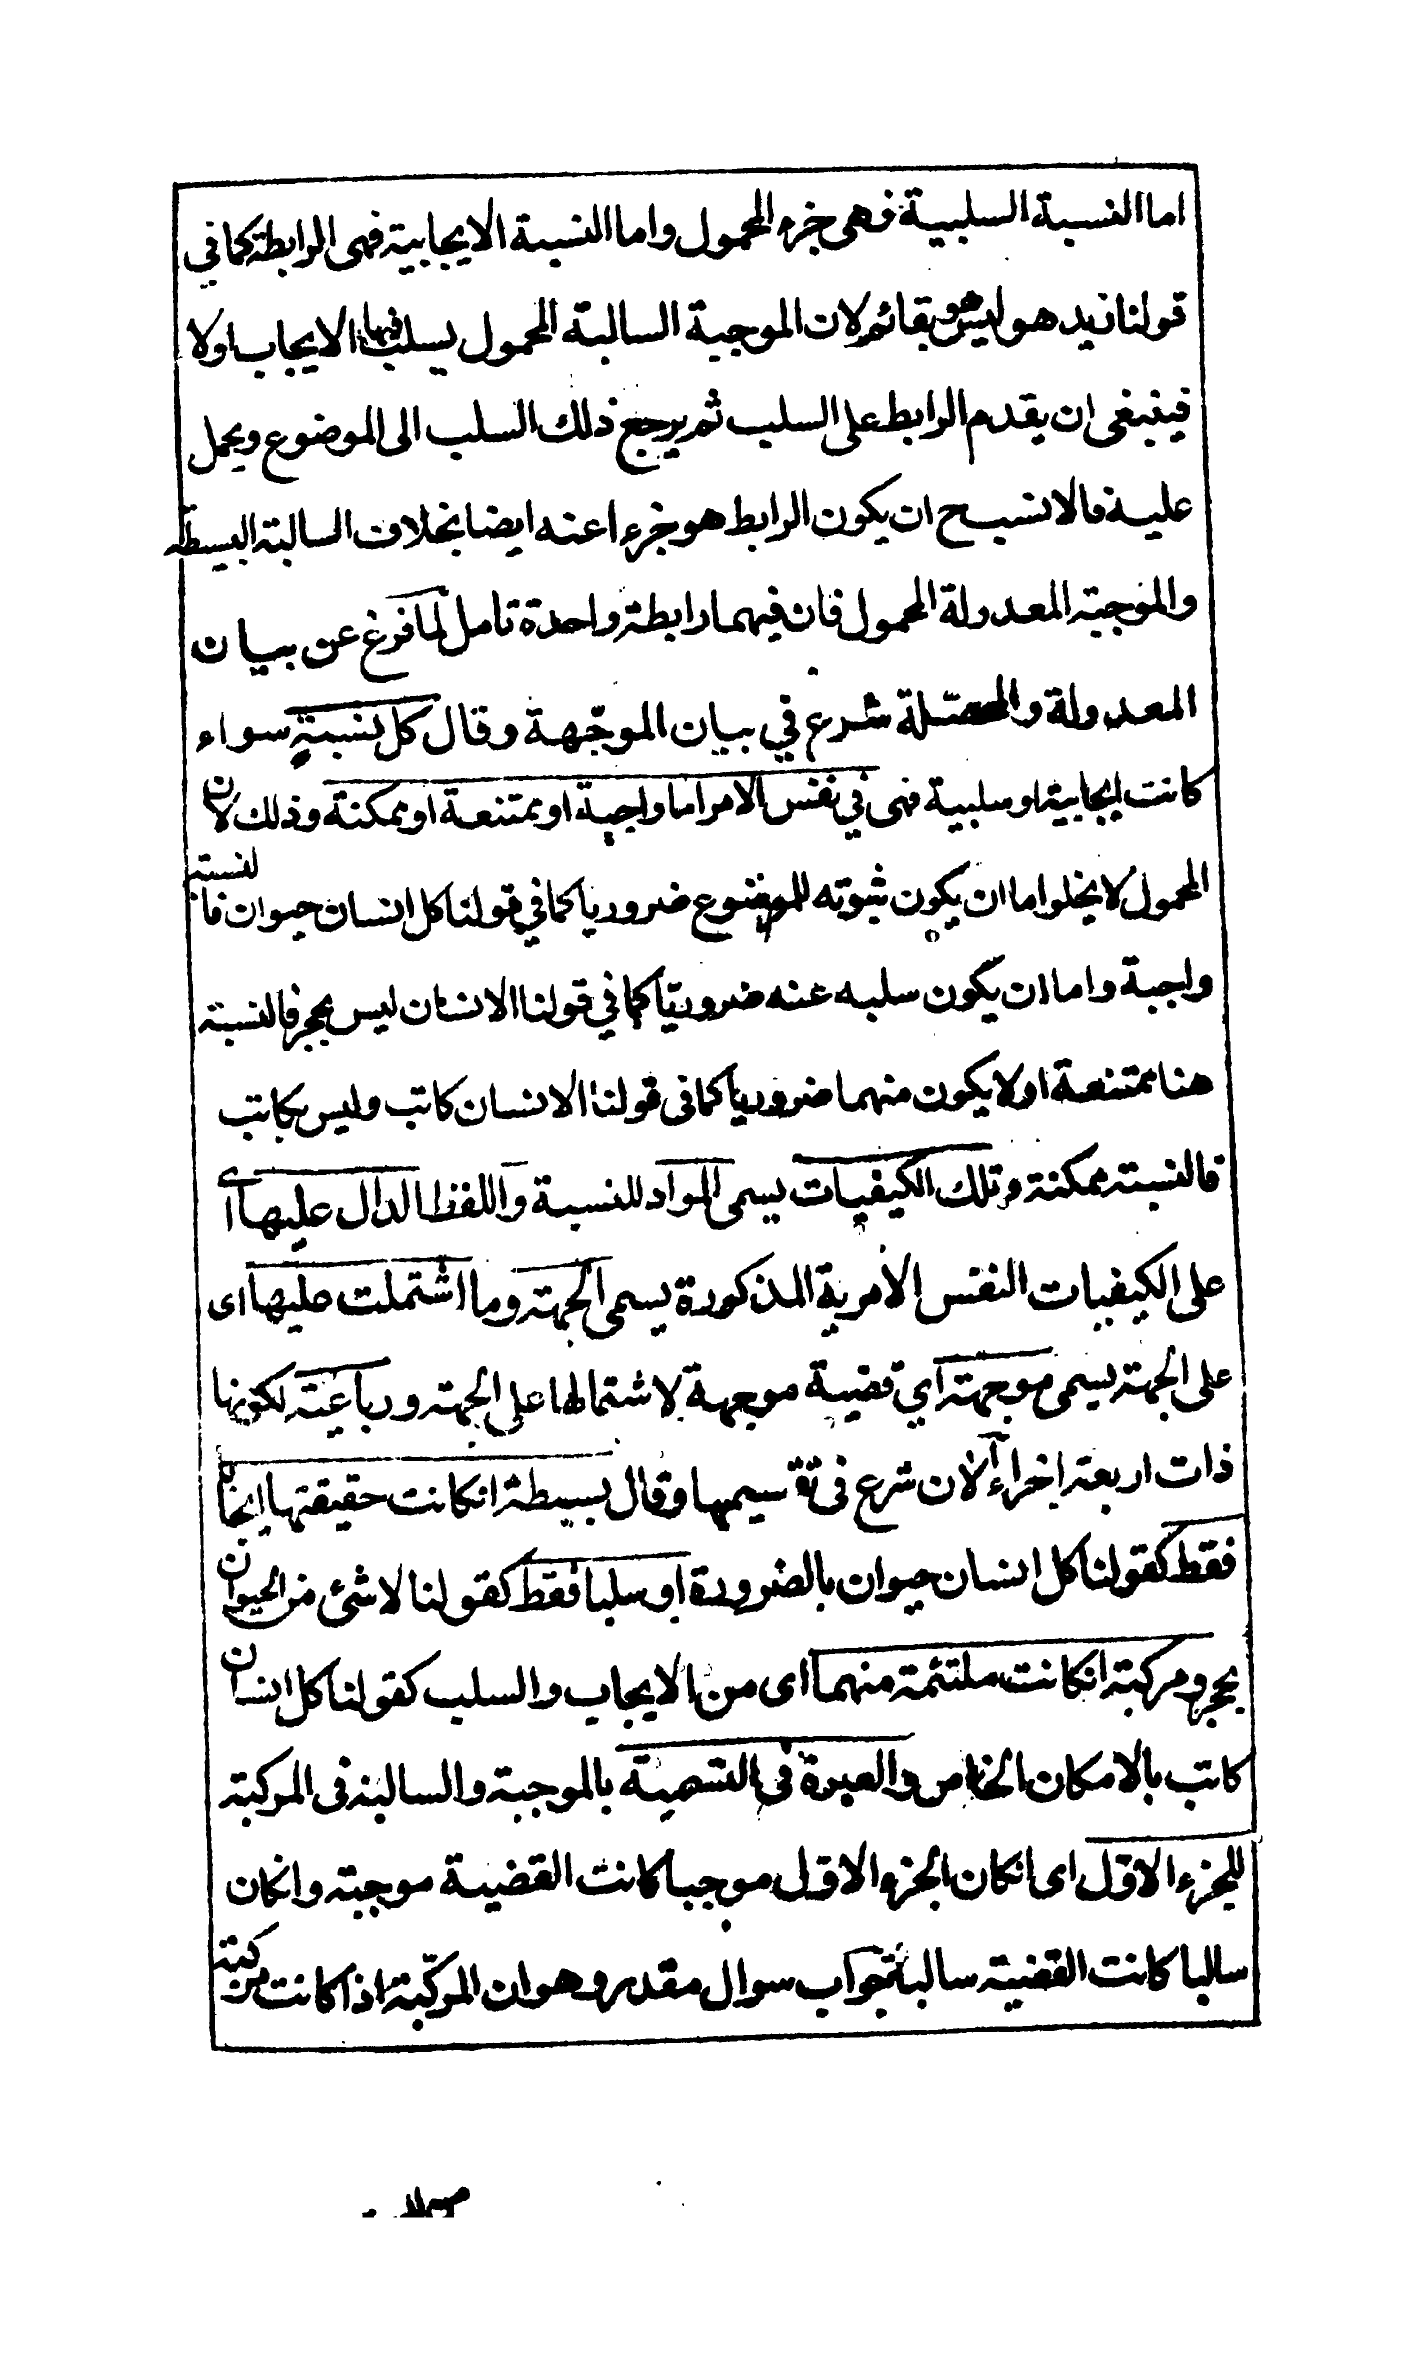 اما النسبة السلبية فهى جزء المحمول واما النسبة الايجابية فهى الرابطة كما في
قولنا زيد هو ليس هو بقائم لان الموجبة السالبة المحمول يسلب فيها الايجاب اولا
فينبغى ان يقدم الرابط على السلب ثم يرجع ذلك السلب الى الموضوع ويحمل
عليه فالانسب ح ان يكون الرابط هو جزءا عنه ايضا بخلاف السالبة البسيطة
والموجبة المعدولة المحمول فان فيهما رابطة واحدة تامل لما فرغ عن بيان
المعدولة والمحصّلة شرع في بيان الموجّهة وقال كل نسبةٍ سواء
كانت ايجابية او سلبية فهى في نفس الامر اما واجبة او ممتنعة او ممكنة وذلك لان
المحمول لا يخلوا اما ان يكون ثبوته للموضوع ضروريا كما في قولنا كل انسان حيوان فالنسبة
واجبة واما ان يكون سلبه عنه ضروريّا كما في قولنا الانسان ليس بحجر فالنسبة
هنا ممتنعة اولا يكون منهما ضروريا كما فى قولنا الانسان كاتب وليس بكاتب
فالنسبة ممكنة وتلك الكيفيات يسمى المواد للنسبة واللفظ الدال عليها اى
على الكيفيات النفس الأمرية المذكورة يسمى الجهة وما اشتملت عليها اى
على الجهة يسمى موجهة اي قضية موجهة لاشتمالها على الجهة ورباعية لكونها
ذات اربعة اجزاء الآن شرع فى تقسيمها وقال بسيطة انكانت حقيقتها ايجابا
فقط كقولنا كل انسان حيوان بالضرورة او سلبا فقط كقولنا لا شئ من الحيوان
بحجر ومركبة انكانت ملتئمة منهما اى من الايجاب والسلب كقولنا كل انسان
كاتب بالامكان الخاص والعبرة في التسمية بالموجبة والسالبة فى المركبة
للجزء الاوّل اى انكان الجزء الاوّل موجبا كانت القضية موجبة وانكان
سالبا كانت القضية سالبة جواب سوال مقدر وهو ان المركّبة اذا كانت مركبة